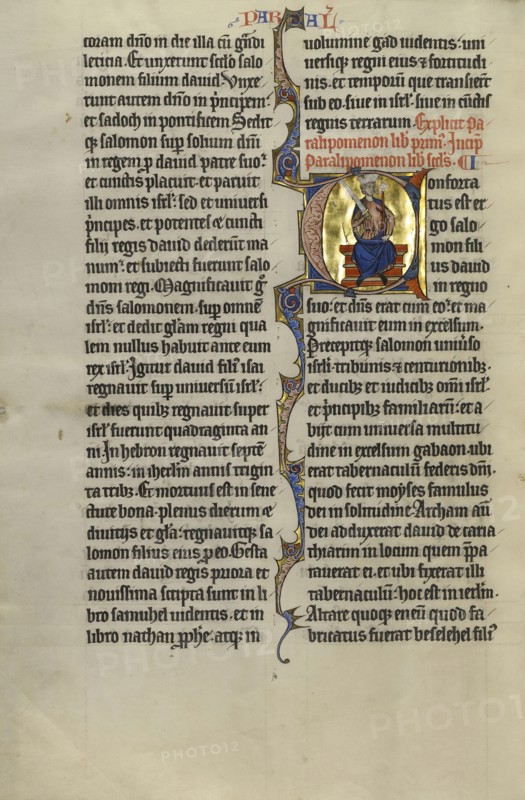 PARAL
coram dño in die illa cũ g̃ndi
leticia. Et unxerunt scd̃o salo
monem filium david. Unxe
runt autem dño in p̃ncipem:
et sadoch in pontificem. Sedit
q̃ salomon sup̃ solium dñi
in regem p̃ david patre suo:
et cunctis placuit. et paruit
illi omnis isrl̃: sed et universi
p̃ncipes. et potentes ⁊ cuncti
filij regis david dederũt ma
num: et subiecti fuerunt salo
moni regi. Magnificavit g̊
dñs salomonem. sup̃ omnẽ
isrl̃: et dedit gl̃am regni qua
lem nullus habuit ante eum
rex isrl̃. Igitur david fili᷒ isai
regnavit sup̃ universũ isrl̃:
et dies quibꝫ regnavit super
isrl̃ fuerunt quadraginta an
ni. In hebron regnavit septẽ
annis: in iherl̃m annis trigin
ta tribꝫ. Et mortuus est in sene
ctute bona. plenus dierum ⁊
divitijs et gl̃a: regnavitqꝫ sa
lomon filius eius p̃ eo. Gesta
autem david regis priora et
novissima scripta sunt in li
bro samuhel videntis. et in
libro nathan p̃phe: atqꝫ in
volumine gad videntis: uni
versiqꝫ regni eius ⁊ fortitudi
nis. et temporũ que transier̃t
sub eo. sive in isrl̃. sive in cũctis
regnis terrarum. Explicit pa
ralipomenon lib̃ prim᷒. Incip̃
Paralipomenon lib̃ scd̃s. C I
Conforta
tus est er
go salo
mon fili
us david
in regno
suo: et dñs erat cum eo: et ma
gnificavit eum in excelsum.
Precepitqꝫ salomon uniṽso
isrl̃i. tribunis ⁊ centurionibꝫ.
et ducibꝫ et iudicibꝫ om̃i isrl̃.
et p̃ncipibꝫ familiarũ: et a
bijt cum universa multitu
dine in excelsum gabaon. ubi
erat tabernaculũ federis dñi.
quod fecit moyses famulus
dei in solitudine. Archam aũ
dei adduxerat david de caria
thiarim in locum quem p̃pa
raverat ei. et ubi fixerat illi
tabernaculũ: hoc est in ierl̃m.
Altare quoqꝫ eneũ quod fa
bricatus fuerat beselehel fili᷒
PHOTO12